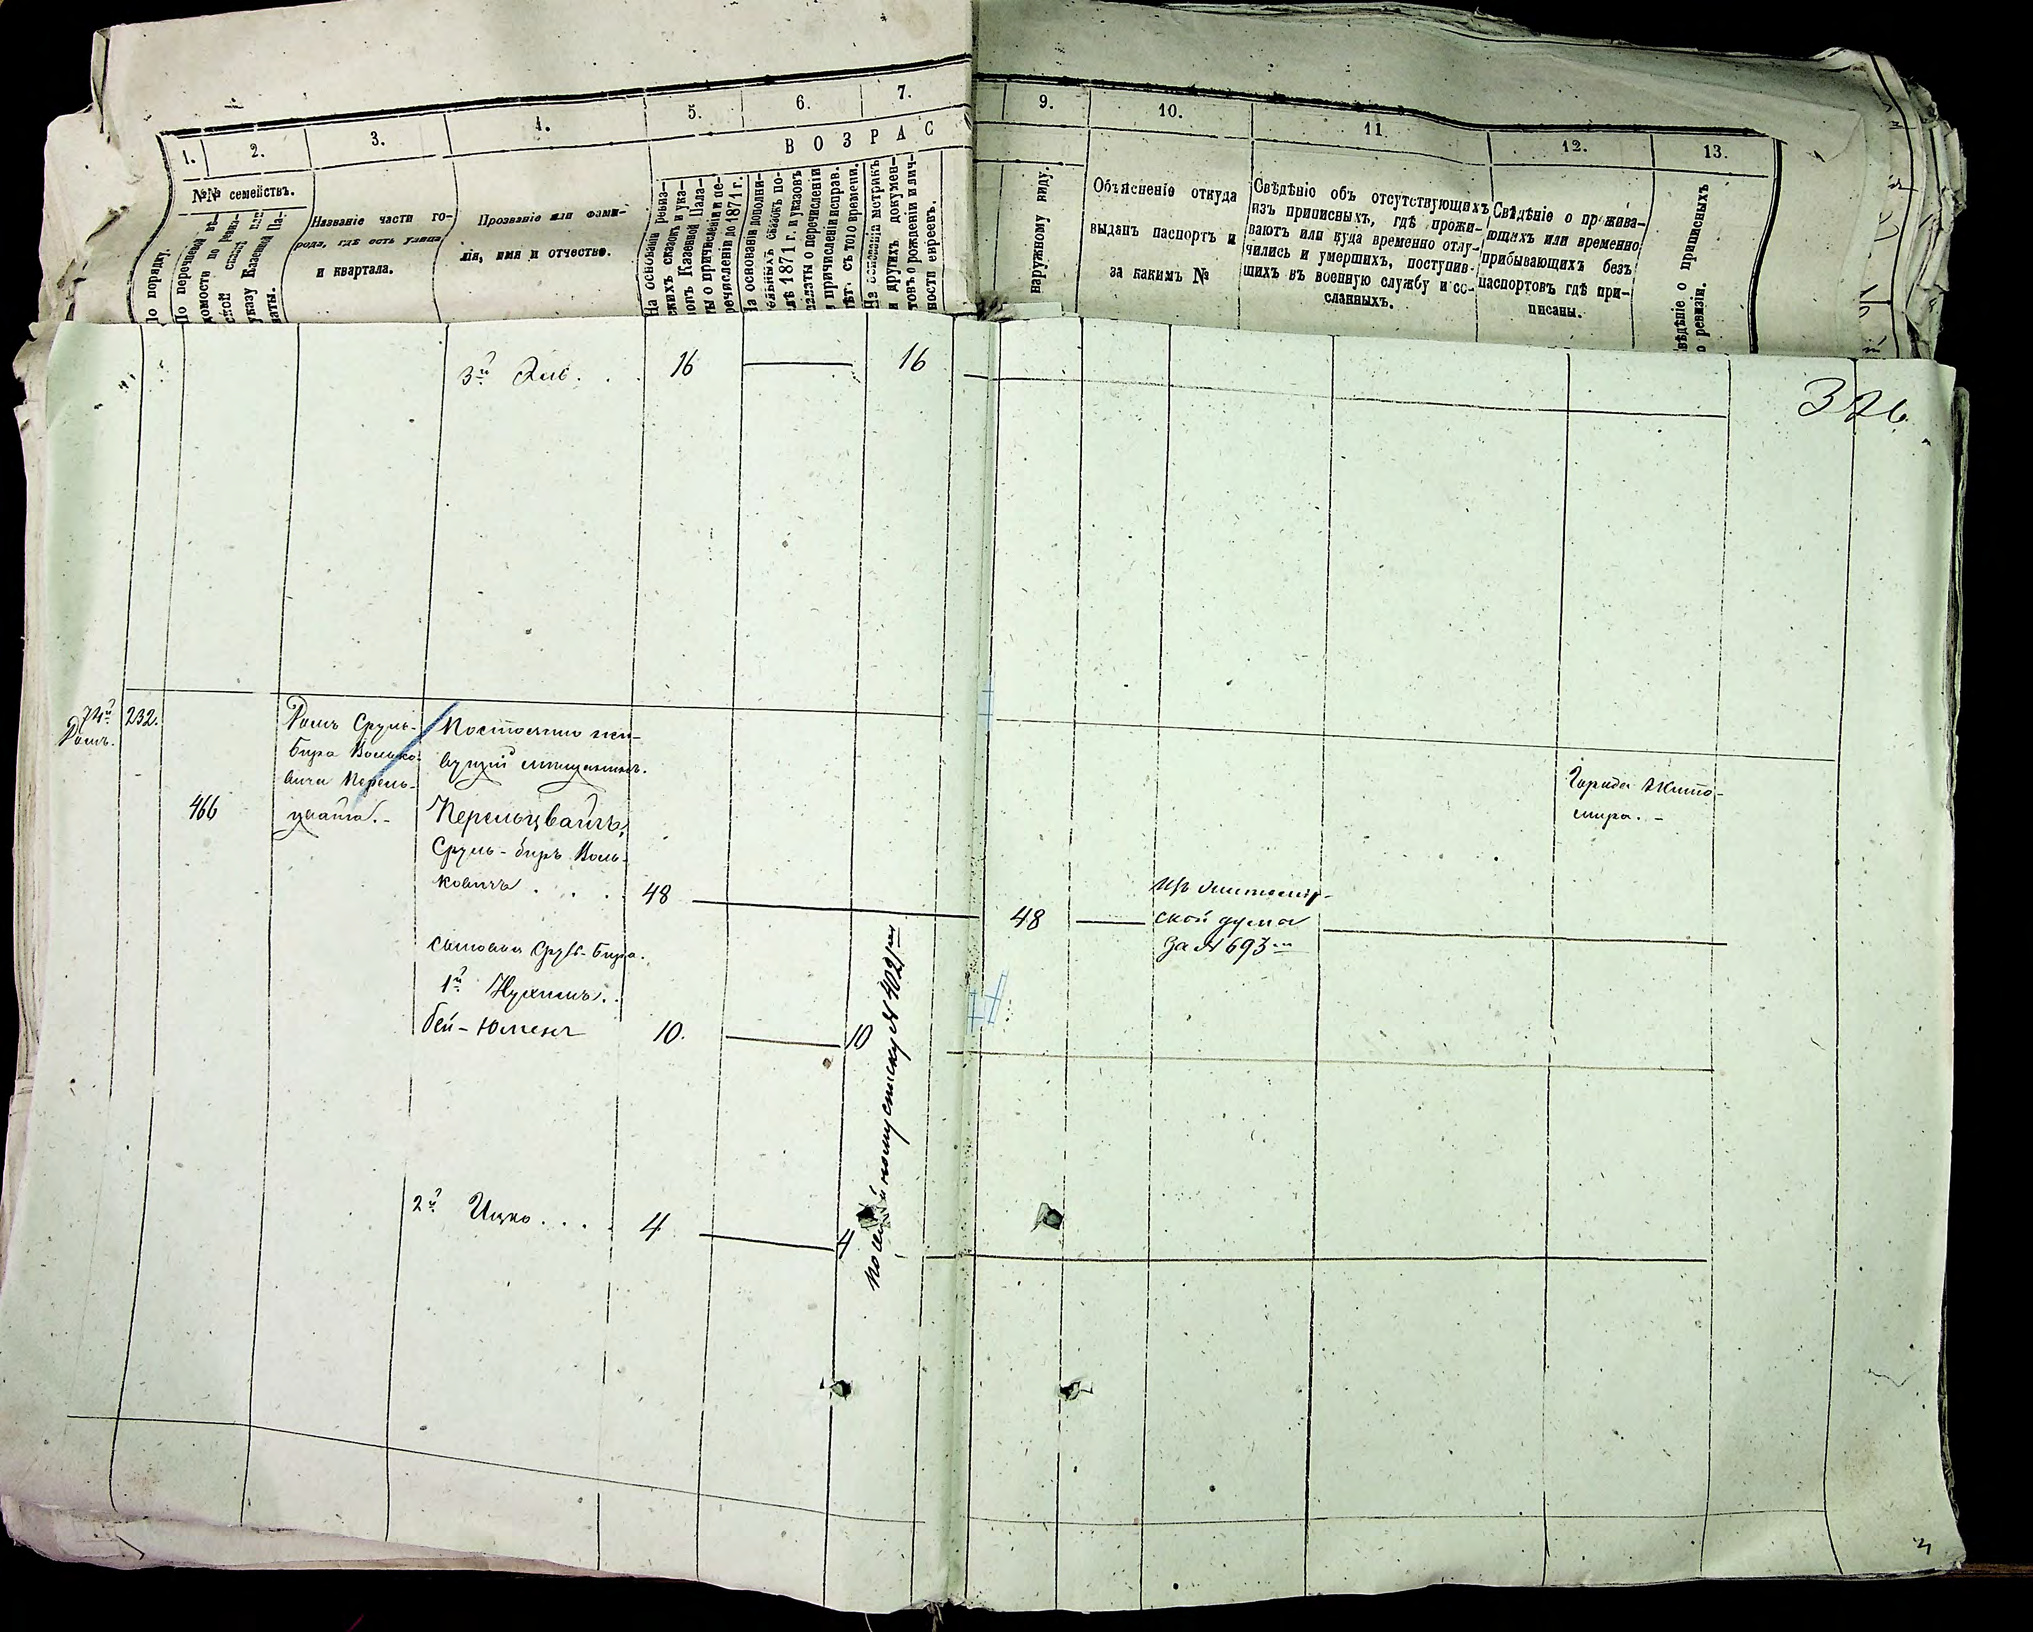 1.
2.
3.
4.
5.
6.
7.
9.
10.
11.
12.
13.
ВОЗРАС
№№ семействъ.
По порядку.
По перечневой вѣ-
домости по ревиз-
ской сказкѣ или
указу Казенной Па-
латы.
Названіе части го-
рода, гдѣ есть улица
и квартала.
Прозваніе или фами-
лія, имя и отчество.
На основаніи ревиз-
скихъ сказокъ и ука-
зовъ Казенной Пала-
ты о причисленіи и пе-
речисленіи до 1871 г.
На основаніи дополни-
тельныхъ сказокъ по-
слѣ 1871 г. и указовъ
палаты о перечисленіи
и причисленіи исправ.
лѣт. съ того времени.
На основаніи метрикъ
и другихъ докумен-
товъ о рожденіи и лич-
ности евреевъ.
наружному виду.
Объясненіе откуда
выданъ паспортъ и
за какимъ №
Свѣдѣніе объ отсутствующихъ
изъ приписныхъ, гдѣ прожи-
ваютъ или куда временно отлу-
чились и умершихъ, поступив-
шихъ въ военную службу и со-
сланныхъ.
Свѣдѣніе о прожива-
ющихъ или временно
прибывающихъ безъ
паспортовъ гдѣ при-
писаны.
вѣдѣніе о приписныхъ
о ревизіи.
326
3й . . 16 16
74й
Домъ.
232.
466
Домъ Сруль-
Бера Волько-
вича Перель-
цвайга.-
Постоянно жи-
вущій мѣщанинъ.
Перельцвайгъ,
Сруль-беръ Воль-
ковичъ . . . 48 48
Изъ Житомір-
ской думы
за № 693
Города Жито-
мира. -
сыновья Сруль-Бера.
1й Нухимъ..
бей-Юмень 10. 10
2й Ицко . . . . 4 4